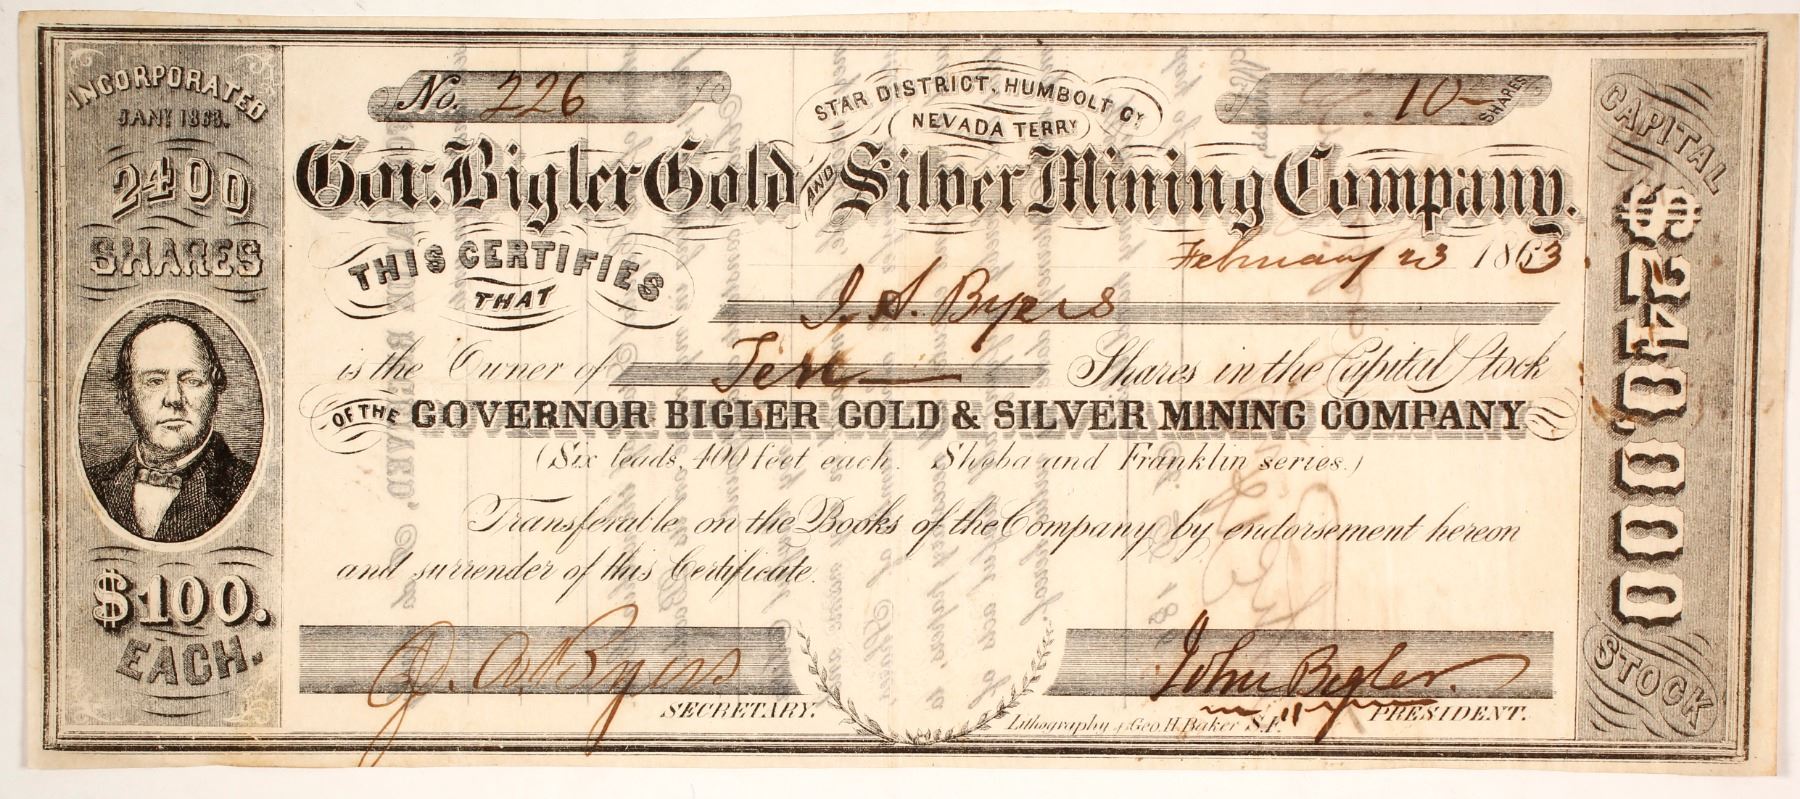 INCORPORATED
JANY 1863.
2400
SHARES
$100.
EACH.
No. 226
STAR DISTRICT, HUMBOLT CY.
NEVADA TERRY
10 - SHARES
Gov. Bigler Gold AND Silver Mining Company.
February 23 1863
THIS CERTIFIES
THAT
J. A. Byers
is the Owner of Ten Shares in the Capital Stock
OF THE GOVERNOR BIGLER GOLD & SILVER MINING COMPANY
(Six leads, 400 feet each. Sheba and Franklin series.)
Transferable on the Books of the Company by endorsement hereon
and surrender of this Certificate.
J. A. Byers
SECRETARY.
John Bigler
PRESIDENT.
Lithography of Geo H. Baker S.F.
CAPITAL
$240,000
STOCK